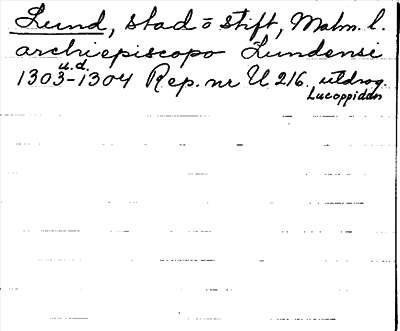 Lund, stad o stift, Malm. l.
archiepiscopo Lundensi
u.d.
1303-1304 Rep. nr U 216. utdrag.
Lucoppidan